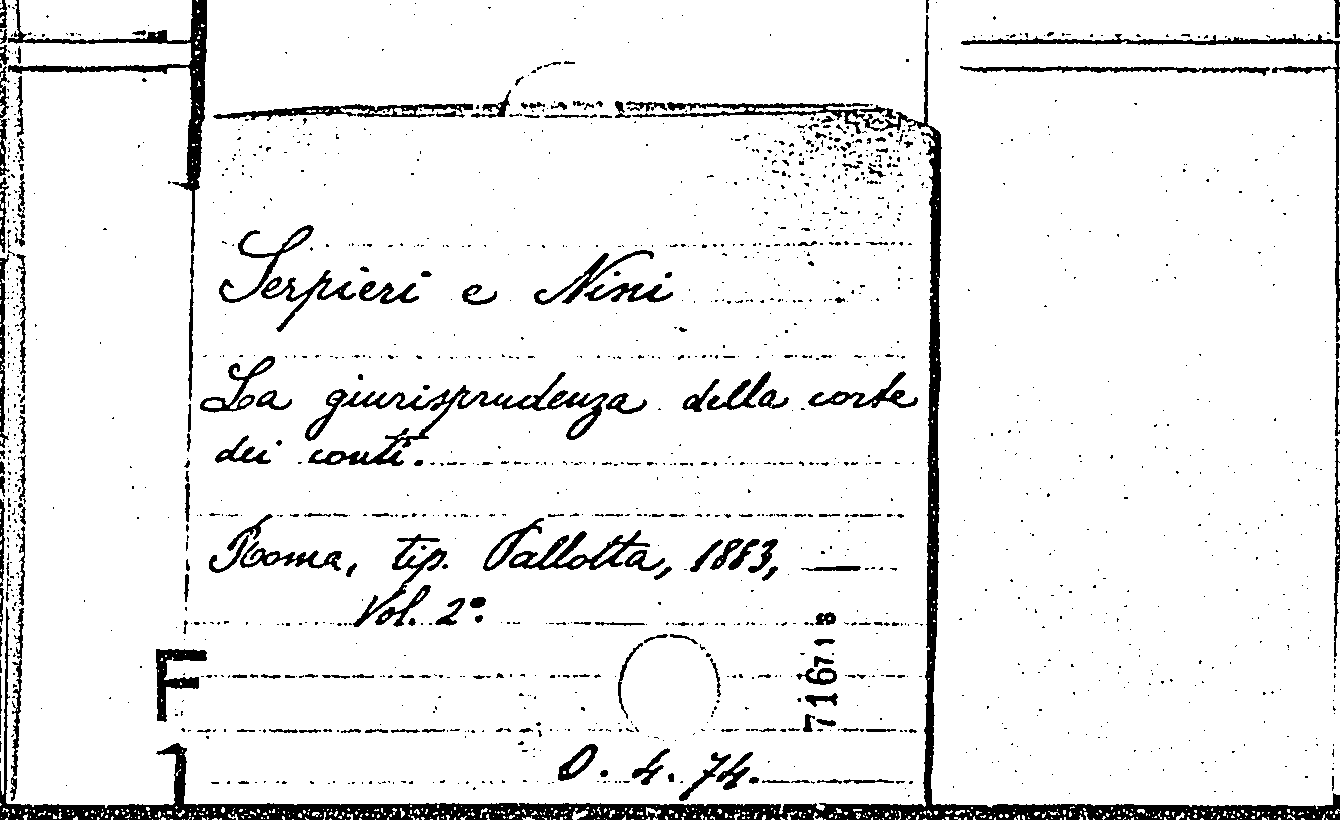 Serpieri e Nini
La giurisprudenza della corte
dei conti.
Roma, tip. Pallotta, 1883, —
Vol. 2°.
716718
O. 4. 74.